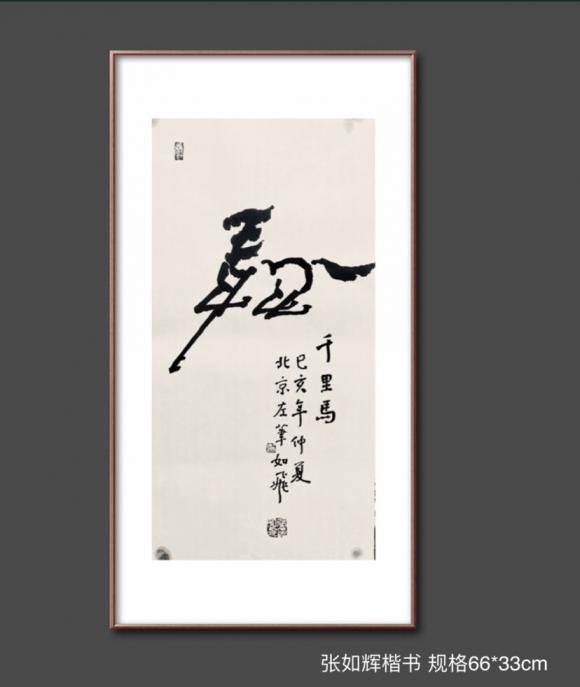 千里马
己亥年仲夏
北京左筆如飛
张如辉楷书 规格66*33cm